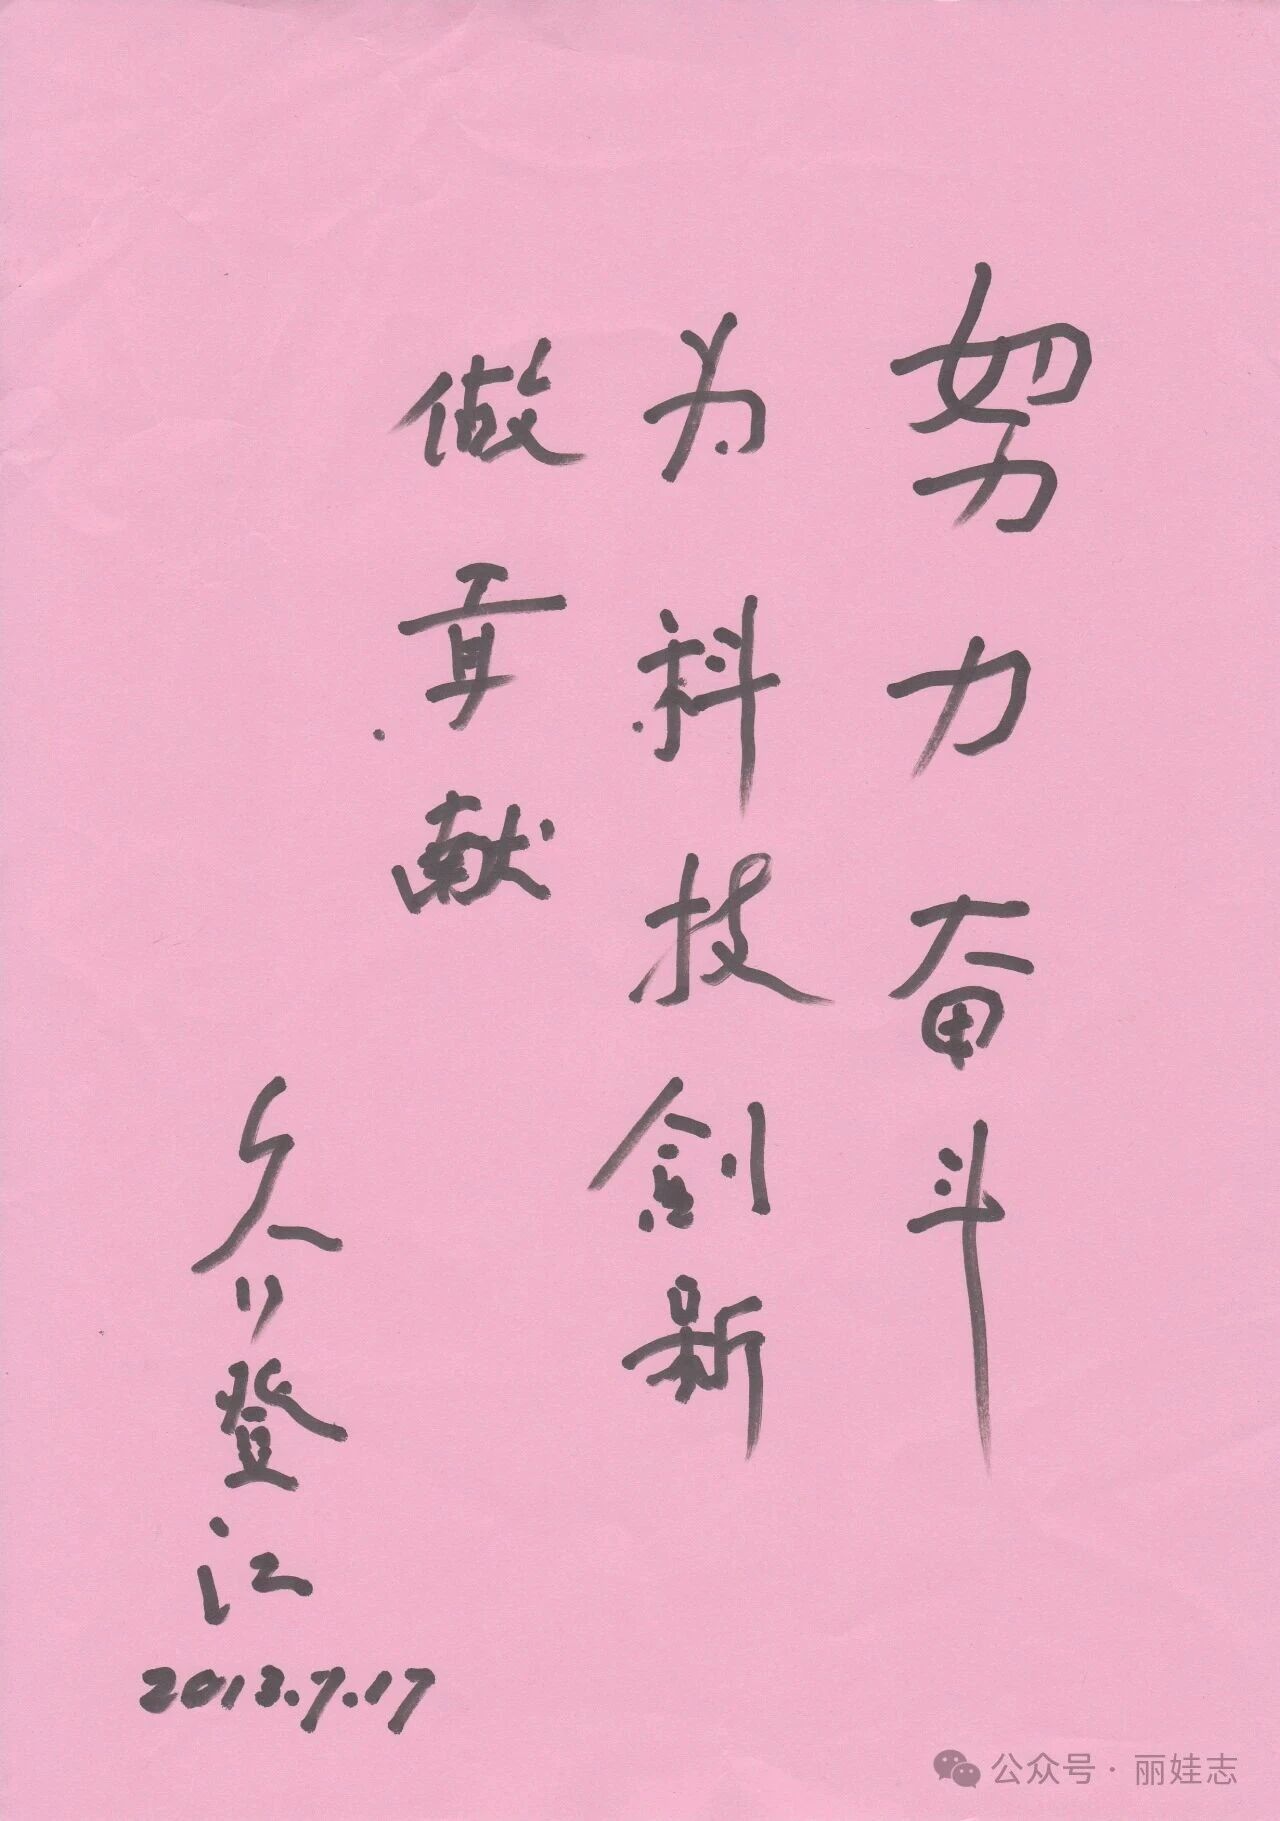 努力奋斗
为科技創新
做贡献
登江
2013.7.17
公众号·丽娃志